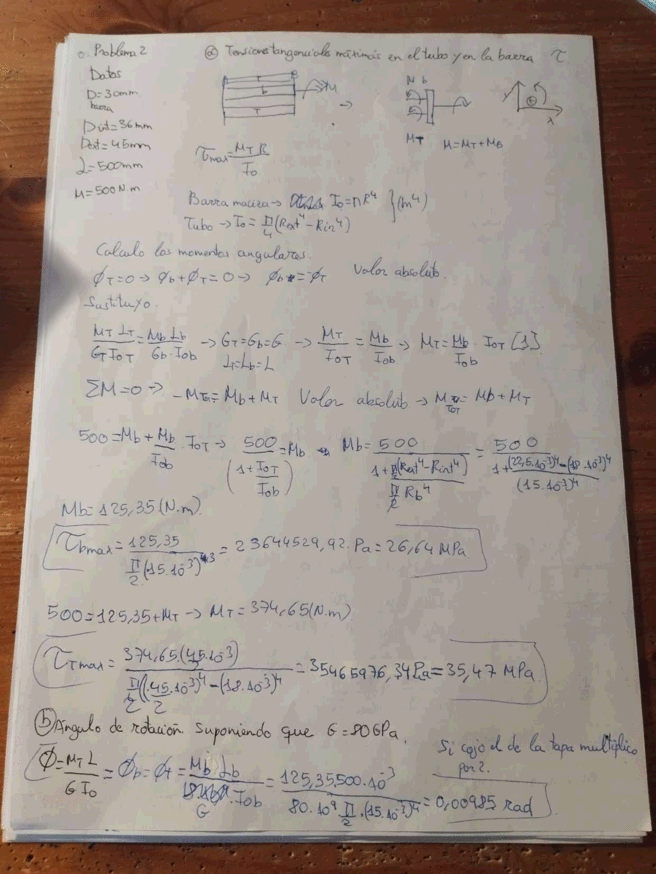 o. Problema 2
Datos
D=30mm
barra
Dint=36mm
Dext=45mm
L=500mm
M=500N.m
a) Tensiones tangenciales máximas en el tubo y en la barra τ
T
b
T
M
→
M b
MT
M=MT+MB
y
x
τmax=MT R/I0
Barra maciza→ I0=πR⁴
Tubo→I0=π/4(Rext⁴-Rin⁴) }(m⁴)
Calculo los momentos angulares.
ϕT=0→ϕb+ϕT=0→ ϕb=-ϕT Valor absoluto.
Sustituyo.
MT LT/GT I0T=Mb Lb/Gb·I0b →GT=Gb=G LT=Lb=L → MT/I0T=Mb/I0b → MT=Mb/I0b·I0T [1]
ΣM=0→ -MTOT=Mb+MT Valor absoluto→MTOT=Mb+MT
500=Mb+Mb/I0b·I0T→ 500/(1+I0T/I0b)=Mb Mb=500/1+π/2(Rext⁴-Rint⁴)/π/2 Rb⁴=500/1+(22,5·10⁻³)⁴-(18·10⁻³)⁴/(15·10⁻³)⁴
Mb=125,35(N.m)
τbmax=125,35/π/2(15·10⁻³)³=23644529,92 Pa=26,64MPa
500=125,35+MT→MT=374,65(N.m)
τTmax=374,65(45·10⁻³)/2/π/2((45·10⁻³/2)⁴-(18·10⁻³)⁴=35465976,34Pa=35,47 MPa
b) Ángulo de rotación suponiendo que G=80GPa.
Si cojo el de la tapa multiplico
por 2.
ϕ=MT L/G I0=ϕb=ϕT=Mb Lb/G·I0b=125,35·500·10⁻³/80·10⁹ π/2·(15·10⁻³)⁴=0,00985 rad